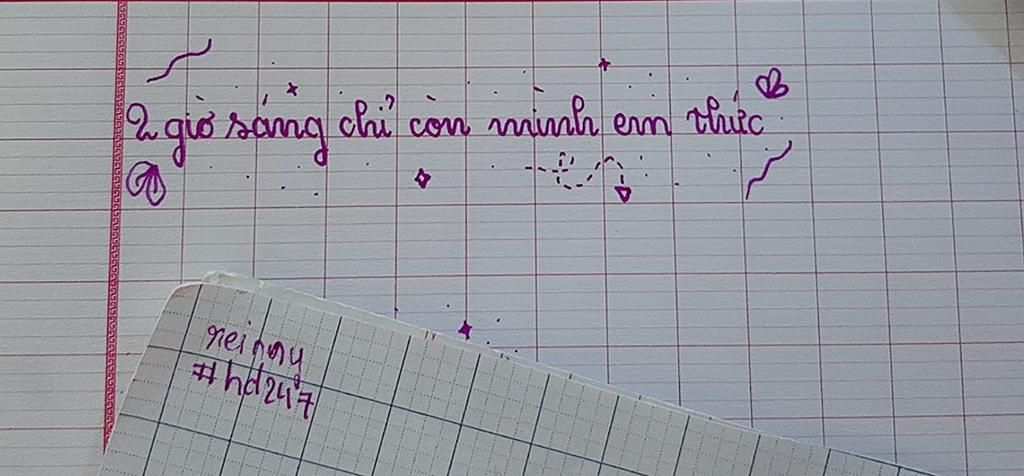 2 giờ sáng chỉ còn mình em thức
#hd247